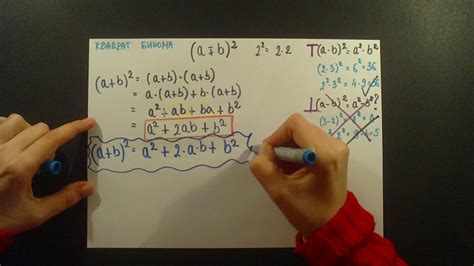 КВАДРАТ БИНОМА (a∓b)² 2² = 2·2
(a+b)² = (a+b)·(a+b)
= a·(a+b) + b·(a+b)
= a² + ab + ba + b²
= a² + 2ab + b²
(a+b)² = a² + 2·a·b + b²
T (a·b)² = a²·b²
(2·3)² = 6² = 36
2²·3² = 4·9 = 36
⊥ (a-b)² = a² - b²?
(3-2)²